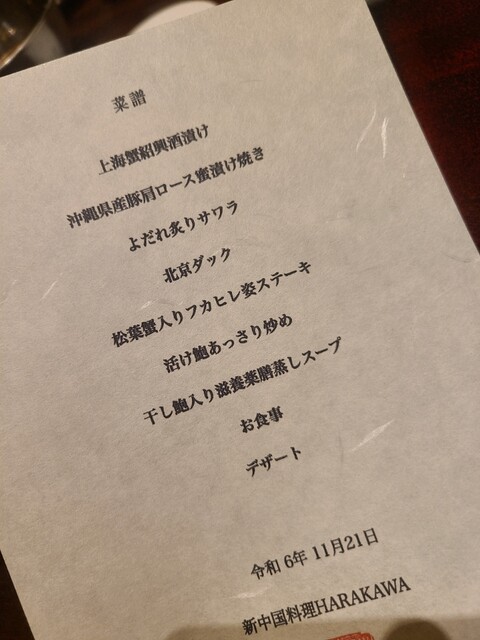 菜譜
上海蟹紹興酒漬け
沖縄県産豚肩ロース蜜漬け焼き
よだれ炙りサワラ
北京ダック
松葉蟹入りフカヒレ姿ステーキ
活け鮑あっさり炒め
干し鮑入り滋養薬膳蒸しスープ
お食事
デザート
令和 6年 11月21日
新中国料理HARAKAWA